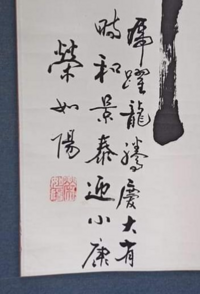 虎躍龍騰慶大有
時和景泰迎小康
榮如陽